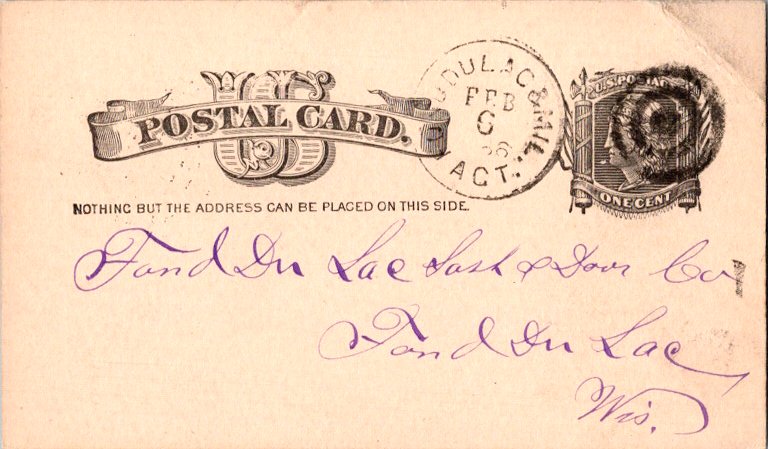 U S
POSTAL CARD.
NOTHING BUT THE ADDRESS CAN BE PLACED ON THIS SIDE.
DULAC & MIL.
FEB
6
86
AGT.
U.S. POSTAGE
ONE CENT
Fond Du Lac Sash & Door Co
Fond Du Lac
Wis.